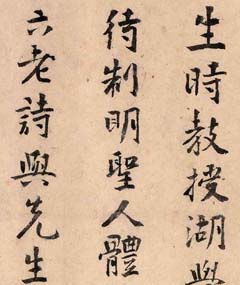 生時教授湖學
待制明聖人體
六老詩與先生